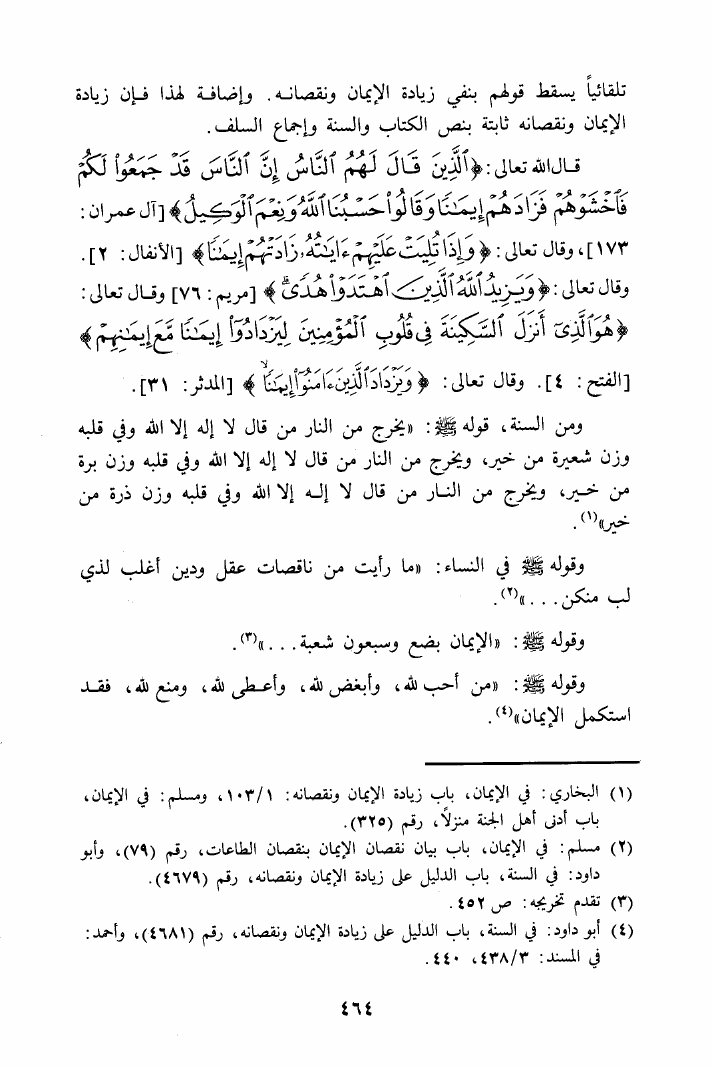 تلقائياً يسقط قولهم بنفي زيادة الإيمان ونقصانه. وإضافة لهذا فإن زيادة
الإيمان ونقصانه ثابتة بنص الكتاب والسنة وإجماع السلف.
قال الله تعالى: ﴿ٱلَّذِينَ قَالَ لَهُمُ ٱلنَّاسُ إِنَّ ٱلنَّاسَ قَدْ جَمَعُوا۟ لَكُمْ
فَٱخْشَوْهُمْ فَزَادَهُمْ إِيمَـٰنًا وَقَالُوا۟ حَسْبُنَا ٱللَّهُ وَنِعْمَ ٱلْوَكِيلُ﴾ [آل عمران:
١٧٣]، وقال تعالى: ﴿وَإِذَا تُلِيَتْ عَلَيْهِمْ ءَايَـٰتُهُۥ زَادَتْهُمْ إِيمَـٰنًا﴾ [الأنفال: ٢].
وقال تعالى: ﴿وَيَزِيدُ ٱللَّهُ ٱلَّذِينَ ٱهْتَدَوْا۟ هُدًىۗ﴾ [مريم: ٧٦] وقال تعالى:
﴿هُوَ ٱلَّذِىٓ أَنزَلَ ٱلسَّكِينَةَ فِى قُلُوبِ ٱلْمُؤْمِنِينَ لِيَزْدَادُوٓا۟ إِيمَـٰنًا مَّعَ إِيمَـٰنِهِمْ﴾
[الفتح: ٤]. وقال تعالى: ﴿وَيَزْدَادَ ٱلَّذِينَ ءَامَنُوٓا۟ إِيمَـٰنًاۙ﴾ [المدثر: ٣١].
ومن السنة، قوله ﷺ: «يخرج من النار من قال لا إله إلا الله وفي قلبه
وزن شعيرة من خير، ويخرج من النار من قال لا إله إلا الله وفي قلبه وزن برة
من خير، ويخرج من النار من قال لا إله إلا الله وفي قلبه وزن ذرة من
خير»(١).
وقوله ﷺ في النساء: «ما رأيت من ناقصات عقل ودين أغلب لذي
لب منكن...»(٢).
وقوله ﷺ: «الإيمان بضع وسبعون شعبة...»(٣).
وقوله ﷺ: «من أحب لله، وأبغض لله، وأعطى لله، ومنع لله، فقد
استكمل الإيمان»(٤).
(١) البخاري: في الإيمان، باب زيادة الإيمان ونقصانه: ١٠٣/١، ومسلم: في الإيمان،
باب أدنى أهل الجنة منزلاً، رقم (٣٢٥).
(٢) مسلم: في الإيمان، باب بيان نقصان الإيمان بنقصان الطاعات، رقم (٧٩)، وأبو
داود: في السنة، باب الدليل على زيادة الإيمان ونقصانه، رقم (٤٦٧٩).
(٣) تقدم تخريجه: ص ٤٥٢.
(٤) أبو داود: في السنة، باب الدليل على زيادة الإيمان ونقصانه، رقم (٤٦٨١)، وأحمد:
في المسند: ٤٣٨/٣، ٤٤٠.
٤٦٤